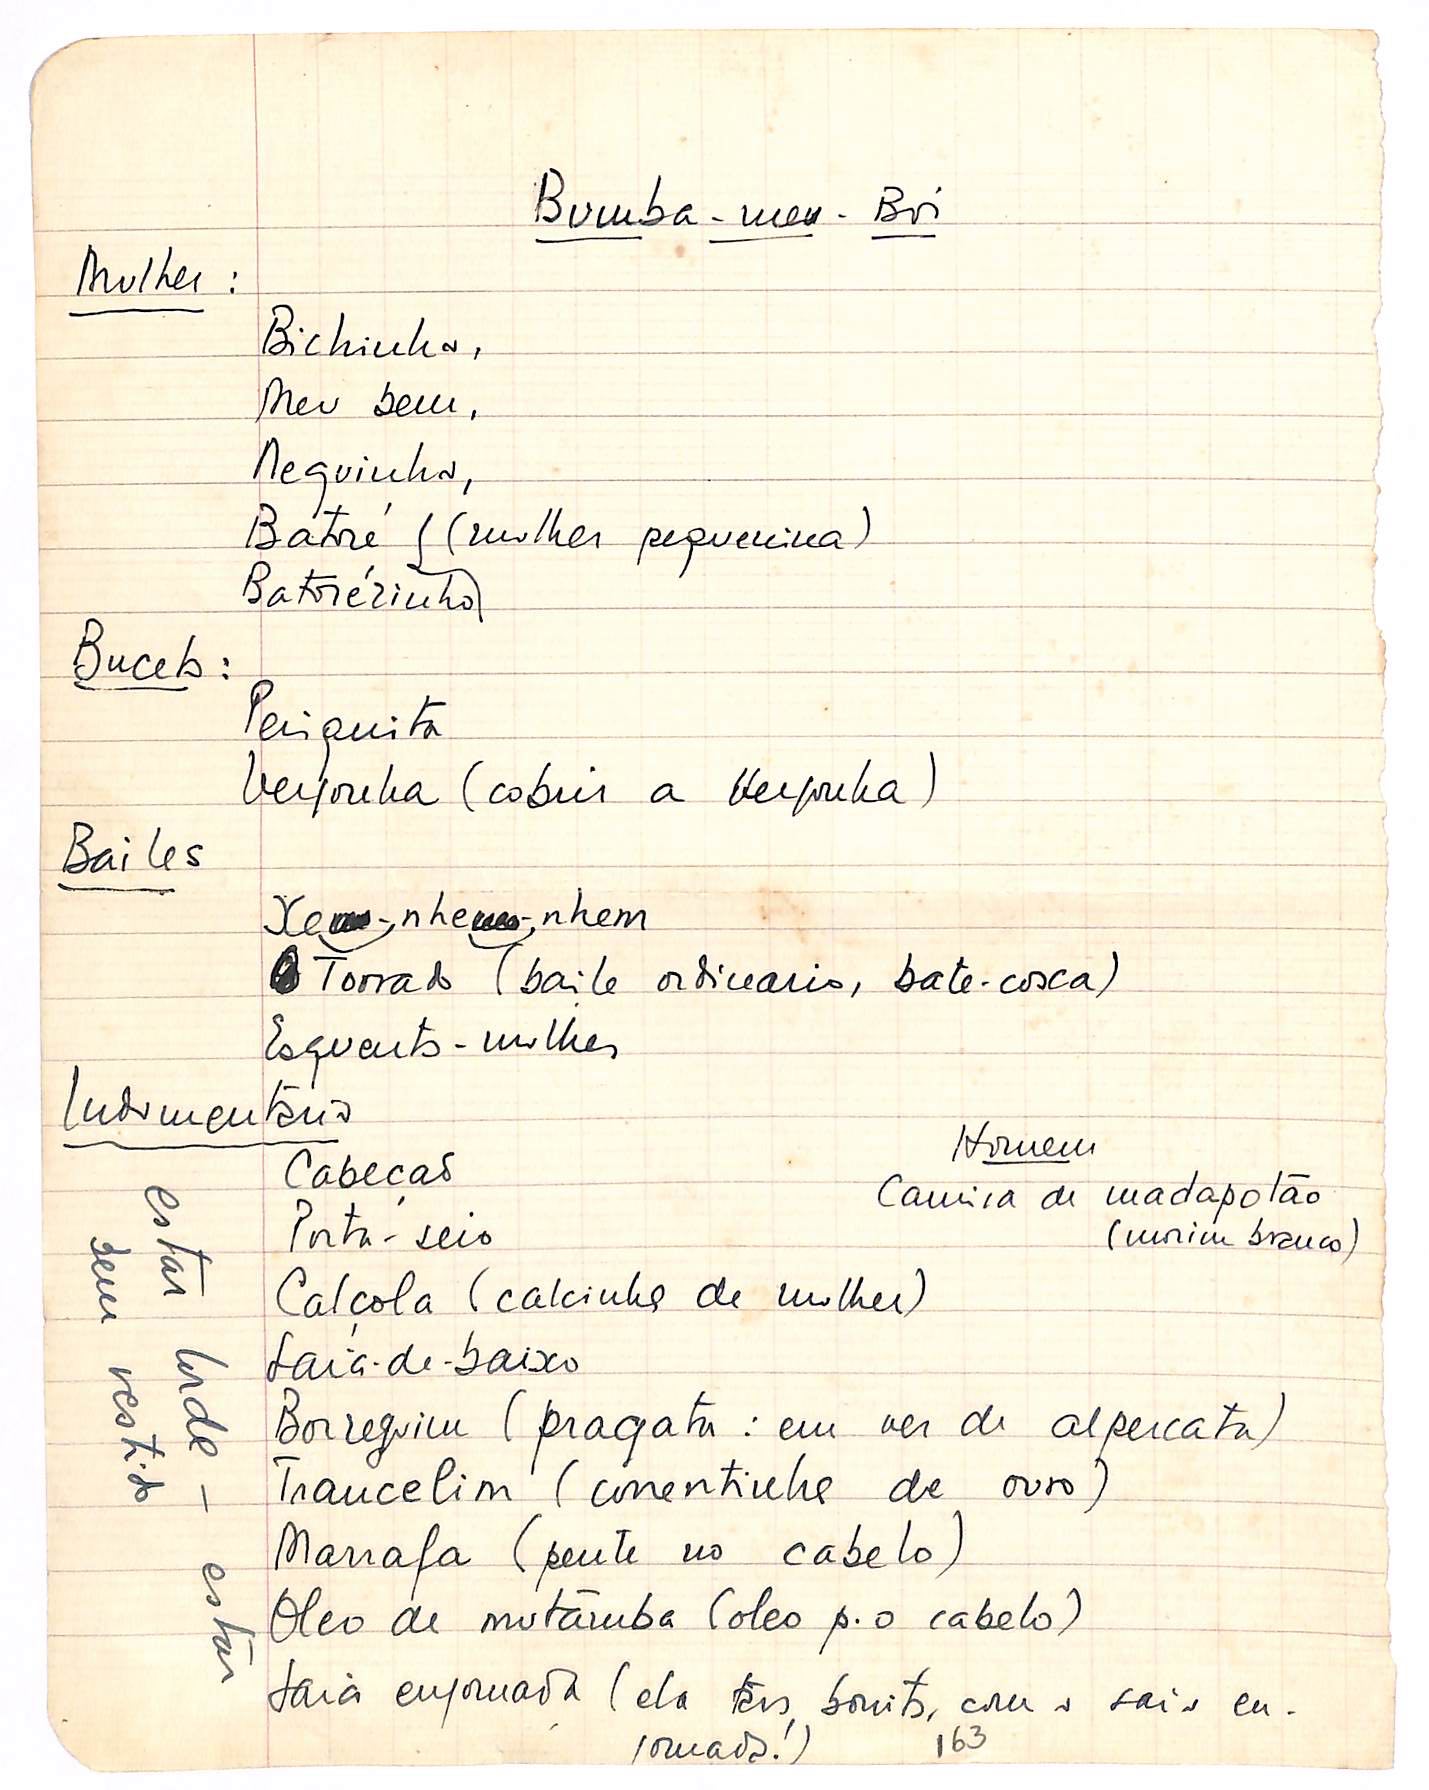 Bumba-meu-Boi
Mulher:
Bichinha,
Meu bem,
Neguinha,
Batoré (mulher pequenina)
Batorézinha
Buceta:
Periquita
Vergonha (cobrir a vergonha)
Bailes
Xe-nhe-nhem
Torrado (baile ordinario, bate-coxa)
Esquenta-mulher
Indumentária
Cabeção
Porta-seio
Calçola (calcinha de mulher)
Saia-de-baixo
Borzeguim (pragata: em vez de alpercata)
Trancelim (correntinha de ouro)
Marrafa (pente no cabelo)
Oleo de mutamba (oleo p. o cabelo)
Saia engomada (ela bonita, com a saia en-
gomada!)
Homem
Camisa de madapolão
(morim branco)
estar lorde - estar
bem vestido
163